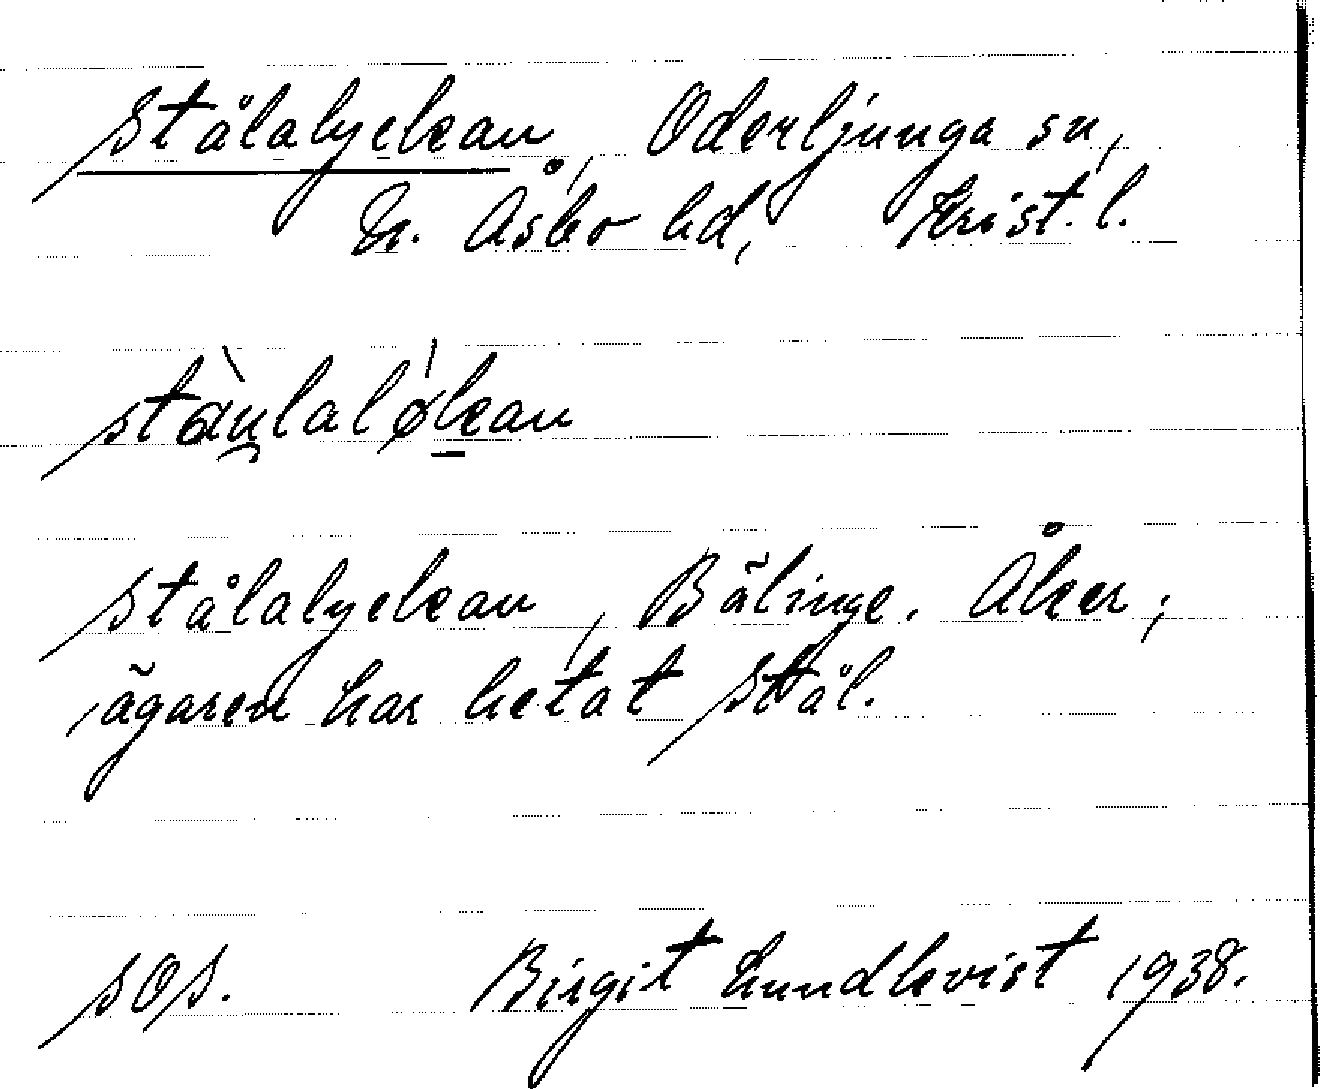 Stålalyckan, Oderljunga sn,
N. Åsbo hd, Krist. l.
stàu̯lalø̍kan
Stålalyckan, Bälinge. Åker;
ägaren har hetat Stål.
SOS. Birgit Lundkvist 1938.